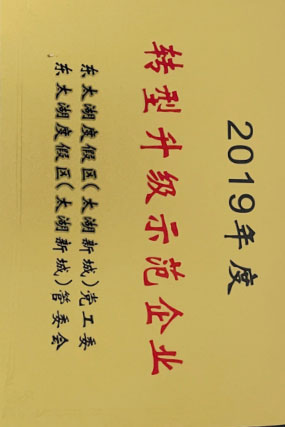 2019年度
转型升级示范企业
东太湖度假区(太湖新城)党工委
东太湖度假区(太湖新城)管委会